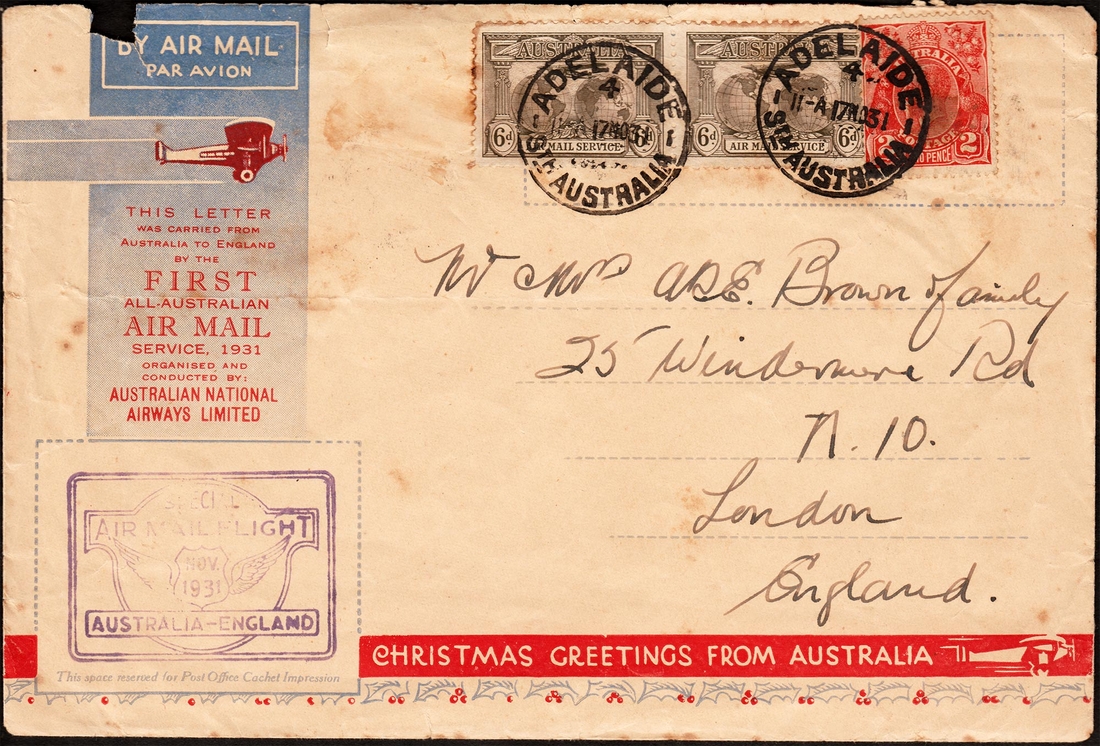 BY AIR MAIL
PAR AVION
AUSTRALIA
6d 6d
AIR MAIL SERVICE
AUSTRALIA
6d 6d
AIR MAIL SERVICE
AUSTRALIA
2 2
POSTAGE
TWO PENCE
ADELAIDE
4
11-A 17NO31
STH AUSTRALIA
ADELAIDE
4
11-A 17NO31
STH AUSTRALIA
THIS LETTER
WAS CARRIED FROM
AUSTRALIA TO ENGLAND
BY THE
FIRST
ALL-AUSTRALIAN
AIR MAIL
SERVICE, 1931
ORGANISED AND
CONDUCTED BY:
AUSTRALIAN NATIONAL
AIRWAYS LIMITED
Brown & family
25 Windermere Rd
N. 10.
London
England.
SPECIAL
AIR MAIL FLIGHT
NOV.
1931
AUSTRALIA-ENGLAND
This space reserved for Post Office Cachet Impression
CHRISTMAS GREETINGS FROM AUSTRALIA